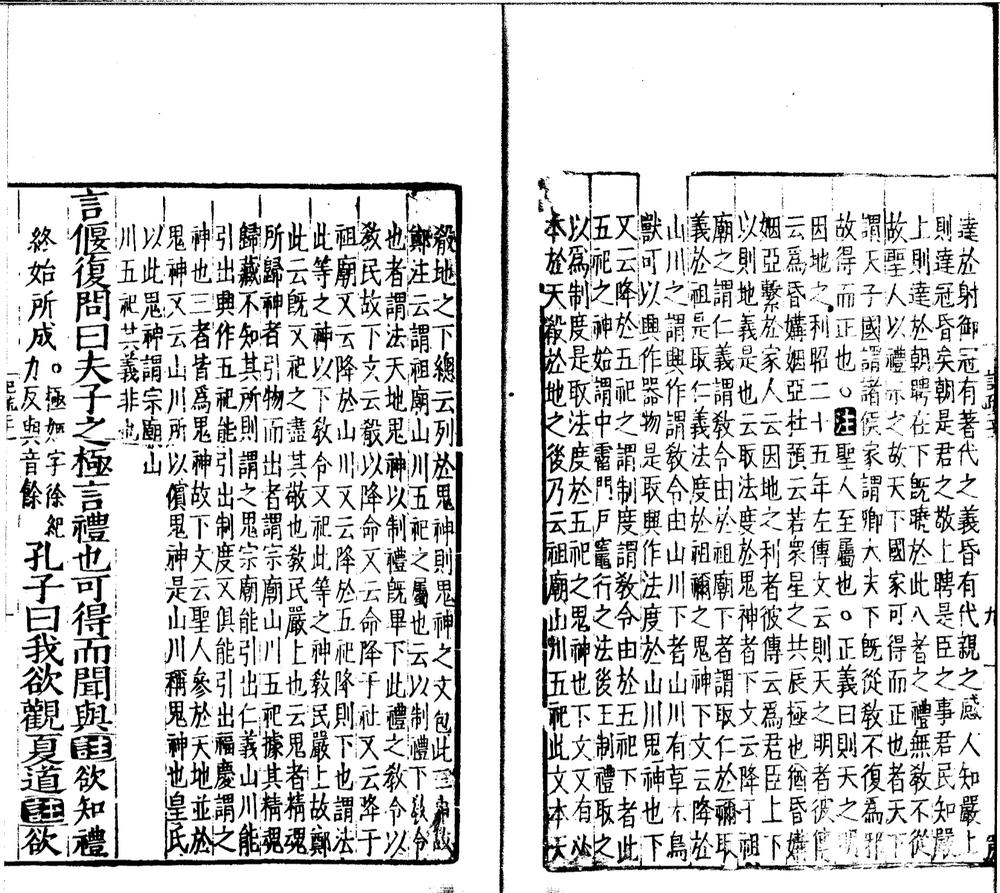 達於射御冠有著代之義昏有代親之感人知嚴上
則達冠昏矣朝是君之敬上聘是臣之事君民知嚴
上則達於朝聘在下既曉於此八者之禮無教不從
故聖人以禮示之故天下國家可得而正也者天下
謂天子國謂諸侯家謂卿大夫下既從教不復為邪
故得而正也○注聖人至屬也○正義曰則天之明
因地之利昭二十五年左傳文云則天之明者彼傳
云爲昏媾姻亞杜預云若衆星之共辰極也猶昏媾
姻亞繫於家人云因地之利者彼傳云爲君臣上下
以則地義是也云取法度於鬼神者下文云降於祖
廟之謂仁義謂教令由於祖廟下者謂取仁於禰取
義於祖是取仁義法度於祖禰之鬼神下文云降於
山川之謂興作謂教令由山川下者山川有草木鳥
獸可以興作器物是取興作法度於山川鬼神也下
又云降於五祀之謂制度謂教令由於五祀下者此
五祀之神始謂中霤門戶竈行之法後王制禮取之
以爲制度是取法度於五祀之鬼神也下文又有必
本於天殽於地之後乃云祖廟山川五祀此文本天
殽地之下總云列於鬼神則鬼神之文包此三
鄭注云謂祖廟山川五祀之屬也云以制禮下教令
也者謂法天地鬼神以制禮既畢下此禮之教令以
教民故下文云殽以降命又云命降于社又云降于
祖廟又云降於山川又云降於五祀降則下也謂法
此等之神以下教令又祀此等之神教民嚴上故鄭
此云既又祀之盡其敬也教民嚴上也云鬼者精魂
所歸神者引物而出者謂宗廟山川五祀據其精魂
歸藏不知其所則謂之鬼宗廟能引出仁義山川能
引出興作五祀能引出制度又俱能引出福慶謂之
神也三者皆爲鬼神故下文云聖人參於天地並於
鬼神又云山川所以儐鬼神是山川稱鬼神也皇氏
以此鬼神謂宗廟山
川五祀共義非也
言偃復問曰夫子之極言禮也可得而聞與註欲知禮
終始所成○極如字徐紀力反與音餘孔子曰我欲觀夏道註欲